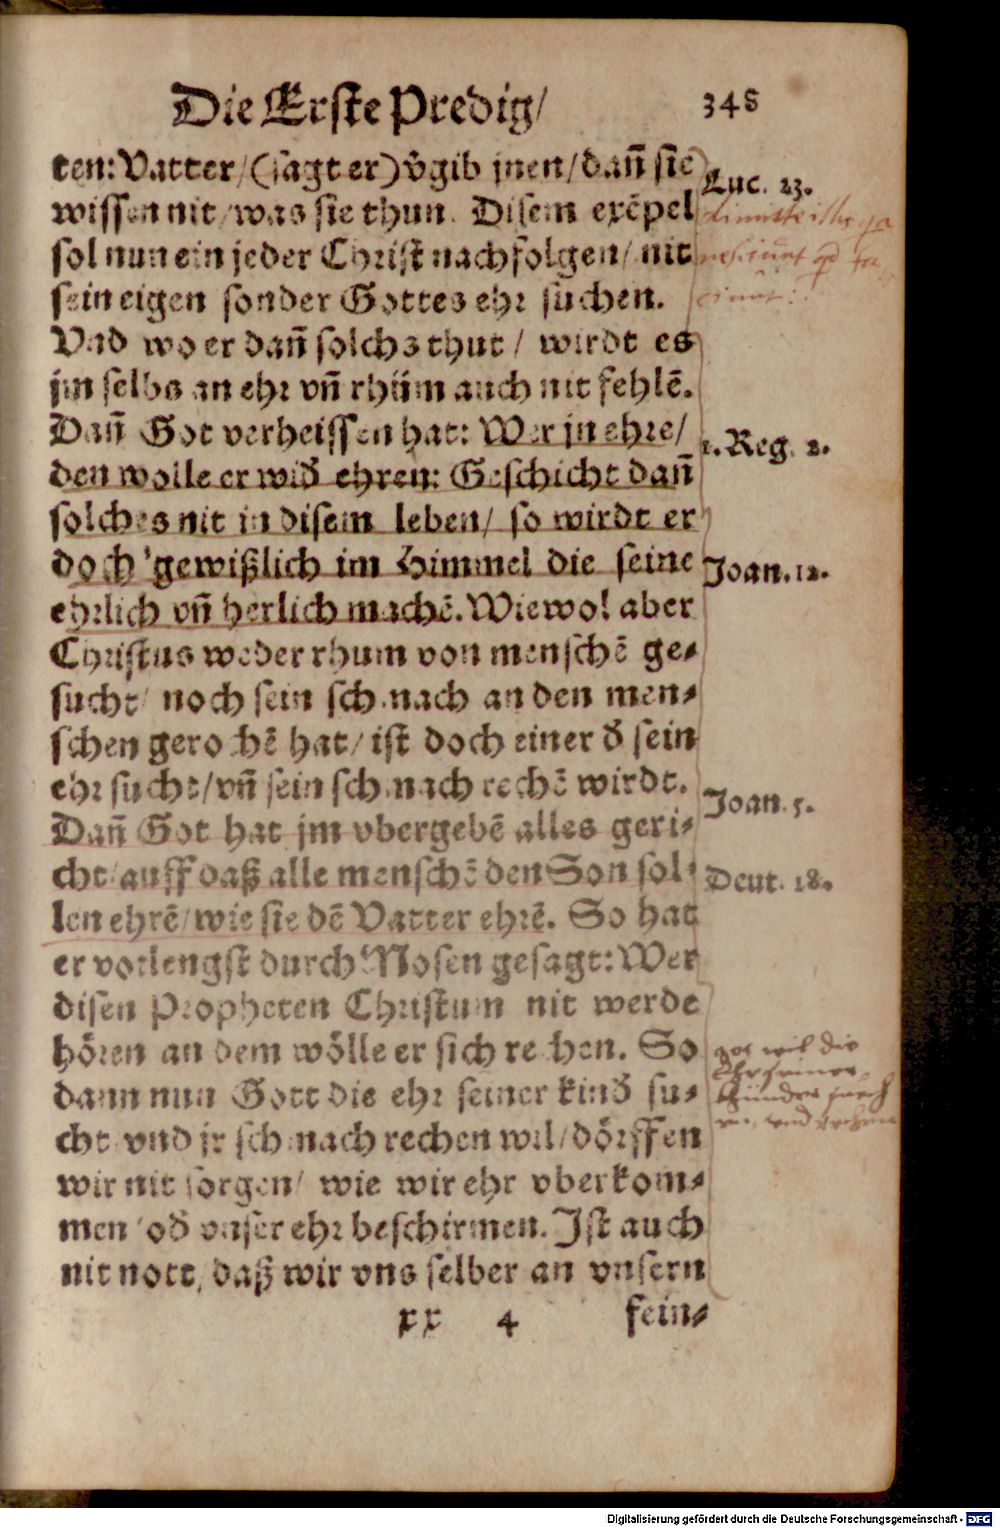 Die Erste Predig/ 348
ten: Vatter/ (sagt er) v̄gib jnen/ dañ sie
wissen nit/ was sie thun. Disem exēpel
sol nun ein jeder Christ nachfolgen/ nit
sein eigen sonder Gottes ehr suchen.
Vnd wo er dañ solchs thut/ wirdt es
jm selbs an ehr vñ rhům auch nit fehlē.
Dañ Got verheissen hat: Wer jn ehre/
den wolle er wid̄ ehren: Geschicht dañ
solches nit in disem leben/ so wirdt er
doch gewißlich im Himmel die seine
ehrlich vñ herlich machē. Wiewol aber
Christus weder rhum von menschē ge⸗
sucht/ noch sein schmach an den men⸗
schen gerochē hat/ ist doch einer d̄ sein
ehr sucht/ vñ sein schmach rechē wirdt.
Dañ Got hat jm vbergebē alles geri⸗
cht/ auff daß alle menschē den Son sol⸗
len ehrē/ wie sie dē Vatter ehrē. So hat
er vorlengst durch Mosen gesagt: Wer
disen Propheten Christum nit werde
hören an dem wölle er sich rechen. So
dann nun Gott die ehr seiner kind̄ su⸗
cht vnd jr schmach rechen wil/ dörffen
wir nit sorgen/ wie wir ehr vberkom⸗
men/ od̄ vnser ehr beschirmen. Ist auch
nit nott, daß wir vns selber an vnsern
xx 4 fein⸗
Luc. 23.
dimitte illis
1. Reg. 2.
Joan. 12.
Joan. 5.
Deut. 18.
wil die
Ehr seiner
Kinder
vnd rechen
Digitalisierung gefördert durch die Deutsche Forschungsgemeinschaft - DFG